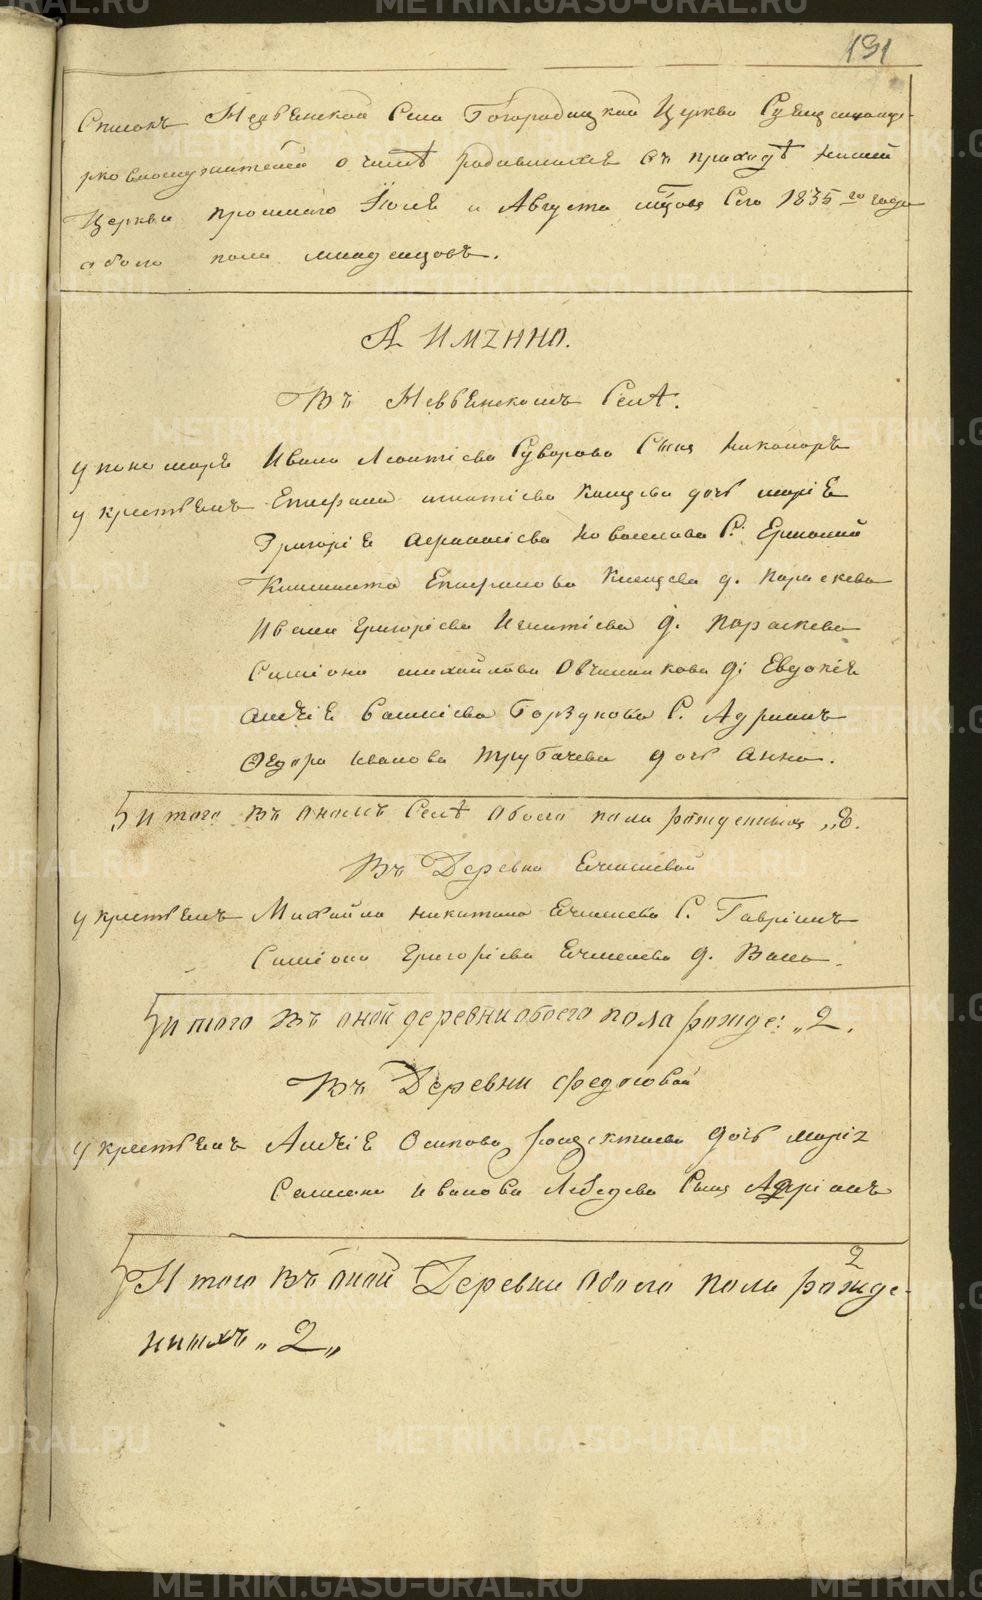 191
Списокъ Невьенской Села Богородицкой Церкви Священноце-
рковнослужителей о числѣ родившихся въ приходѣ нашей
Церкви прошлаго Іюля и Августа мцовъ Сего 1835 го года
обоего пола младенцовъ.
А Имянно.
Въ Невьенскомъ Селѣ.
у пономаря Ивана Леонтіева Суворова Сынъ Никаноръ
у крестьянъ Епифана Игнатіева Канцева дочь Марія
Григорія Новоселова С. Ермолай
Климента Епифанова д. Параскева
Ивана Григоріева Игнатіева д. Параскева
Симіона Михайлова Овчинникова д: Евдокія
Алѣксія С. Адріанъ
Федора Иванова Трубачева дочь Анна.
И того въ ономъ Селѣ обоего пола рожденныхъ „8.
Въ Деревни Ечкиневой
у крестьянъ Михайла Никитина С. Гавріилъ
Симіона Григоріева д. Васса.
И того въ оной деревни обоего пола рожде: „2.
Въ Деревни Федосовой
у крестьянъ Алѣксія Осипова дочь Марія
Симиона Иванова Лебедева Сынъ Адріанъ
И того въ оной Деревни обоего пола рожде-
2
нныхъ „2„
METRIKI.GASO-URAL.RU